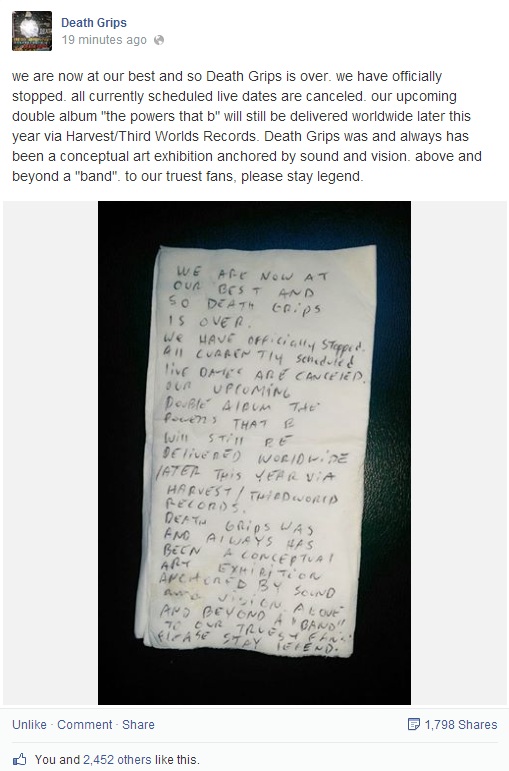 Death Grips
19 minutes ago
we are now at our best and so Death Grips is over. we have officially
stopped. all currently scheduled live dates are canceled. our upcoming
double album "the powers that b" will still be delivered worldwide later this
year via Harvest/Third Worlds Records. Death Grips was and always has
been a conceptual art exhibition anchored by sound and vision. above and
beyond a "band". to our truest fans, please stay legend.
WE ARE NOW AT
OUR BEST AND
SO DEATH GRIPS
IS OVER.
WE HAVE OFFICIAlly Stopped.
All CURRENTLY Scheduled
live DATES ARE CANCELED.
OUR UPCOMING
DOUBLE AlBUM THE
POWERS THAT B
Will STill BE
DELIVERED WORLDWIDE
LATER THIS YEAR VIA
HARVEST/THIRDWORLD
RECORDS.
DEATH GRIPS WAS
AND AlWAYS HAS
BEEN A CONCEPTUAl
ART EXHIBITION
ANCHORED BY SOUND
AND VISION. ABOVE
AND BEYOND A "BAND"
TO OUR TRUEST FANS
PLEASE STAY LEGEND.
Unlike · Comment · Share
1,798 Shares
You and 2,452 others like this.